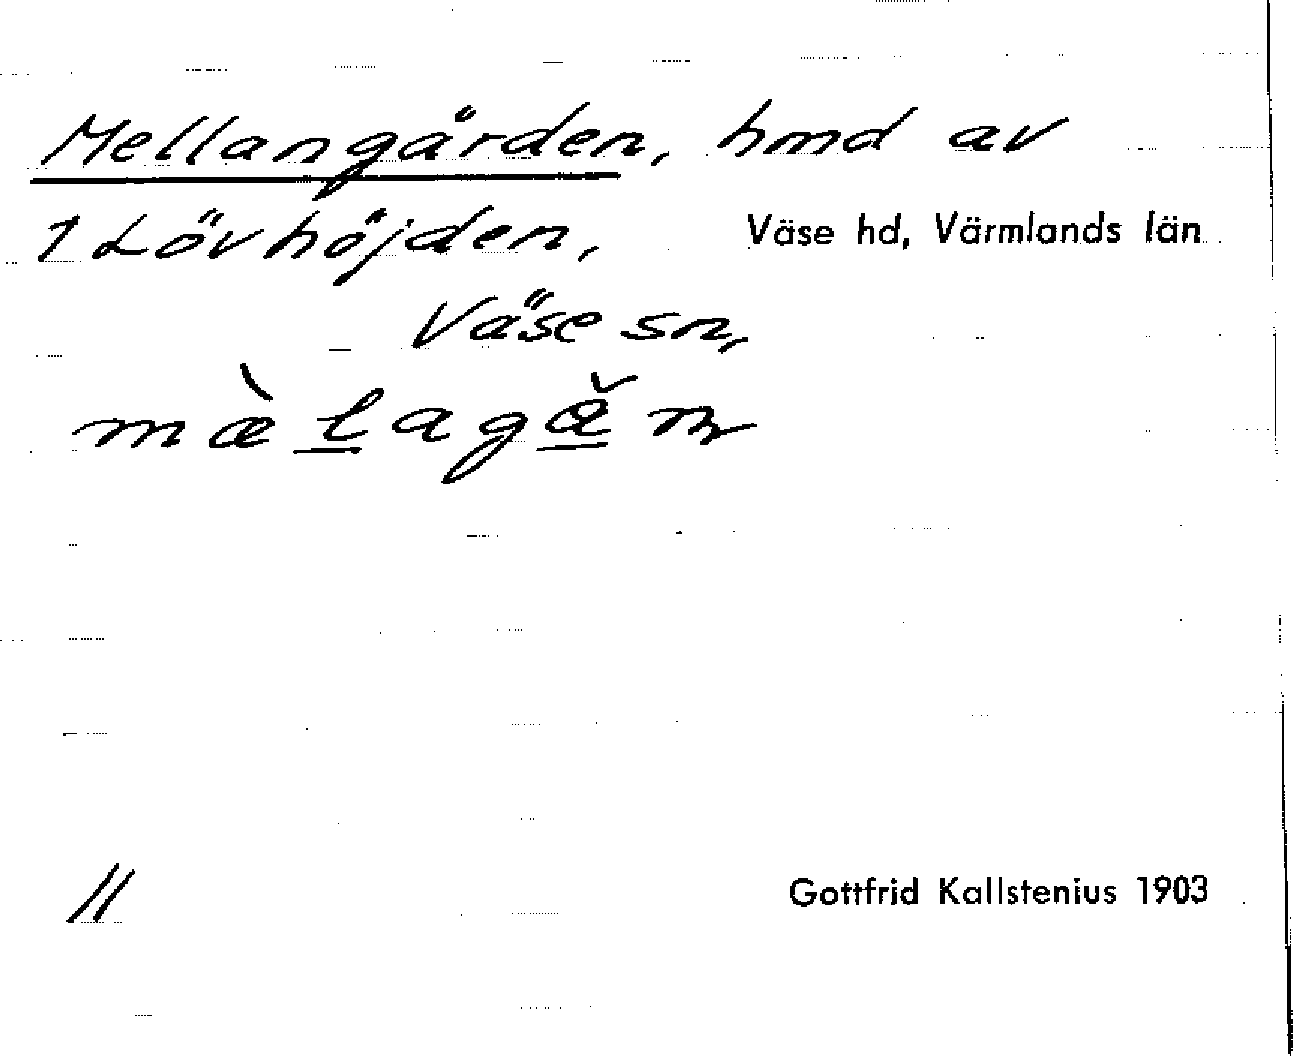 Mellangården, hmd av
1 Lövhöjden, Väse hd, Värmlands län
Väse sn,
mæ̀l̲agå̲̌n
11
Gottfrid Kallstenius 1903